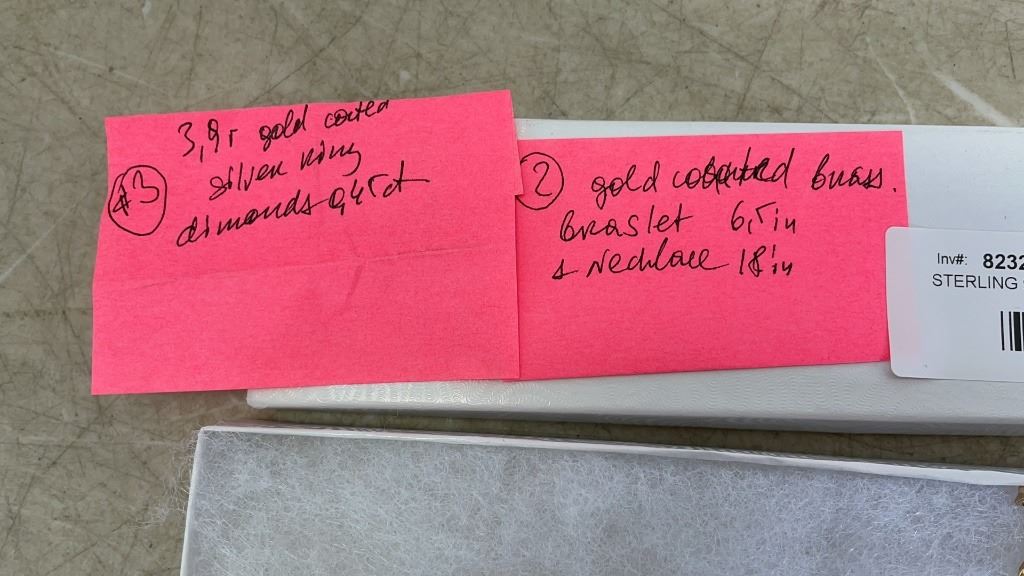 3,9г gold coated
silver ring
dimonds 0,45ct
#3
2
gold coated brass.
Braslet 6,5 in
& Necklace 18 in
Inv#: 8232
STERLING